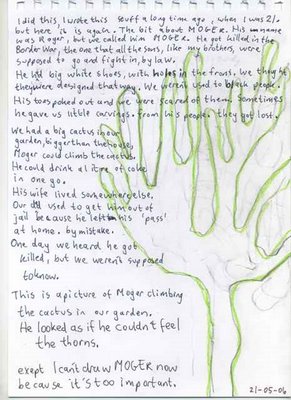 I did this I wrote this stuff a long time ago, when I was 21.
but here it is again. The bit about MOGER. His name
was Roger, but we called him MOGER. He got killed in the
Border War, the one that all the sons, like my brothers, were
supposed to go and fight in, by law.
He had big white shoes, with holes in the fronts. We thought
they were designed that way. We weren't used to black people.
His toes poked out and we were scared of them. Sometimes
he gave us little carvings. from his people. they got lost.
We had a big cactus in our
garden, bigger than the house,
Moger could climb the cactus.
He could drink a litre of coke
in one go.
His wife lived somewhere else.
Our dad used to get him out of
jail because he left his 'pass'
at home. by mistake.
One day we heard he got
killed, but we weren't supposed
to know.
This is a picture of Moger climbing
the cactus in our garden.
He looked as if he couldn't feel
the thorns.
exept I can't draw MOGER now
because it's too important.
21-05-06